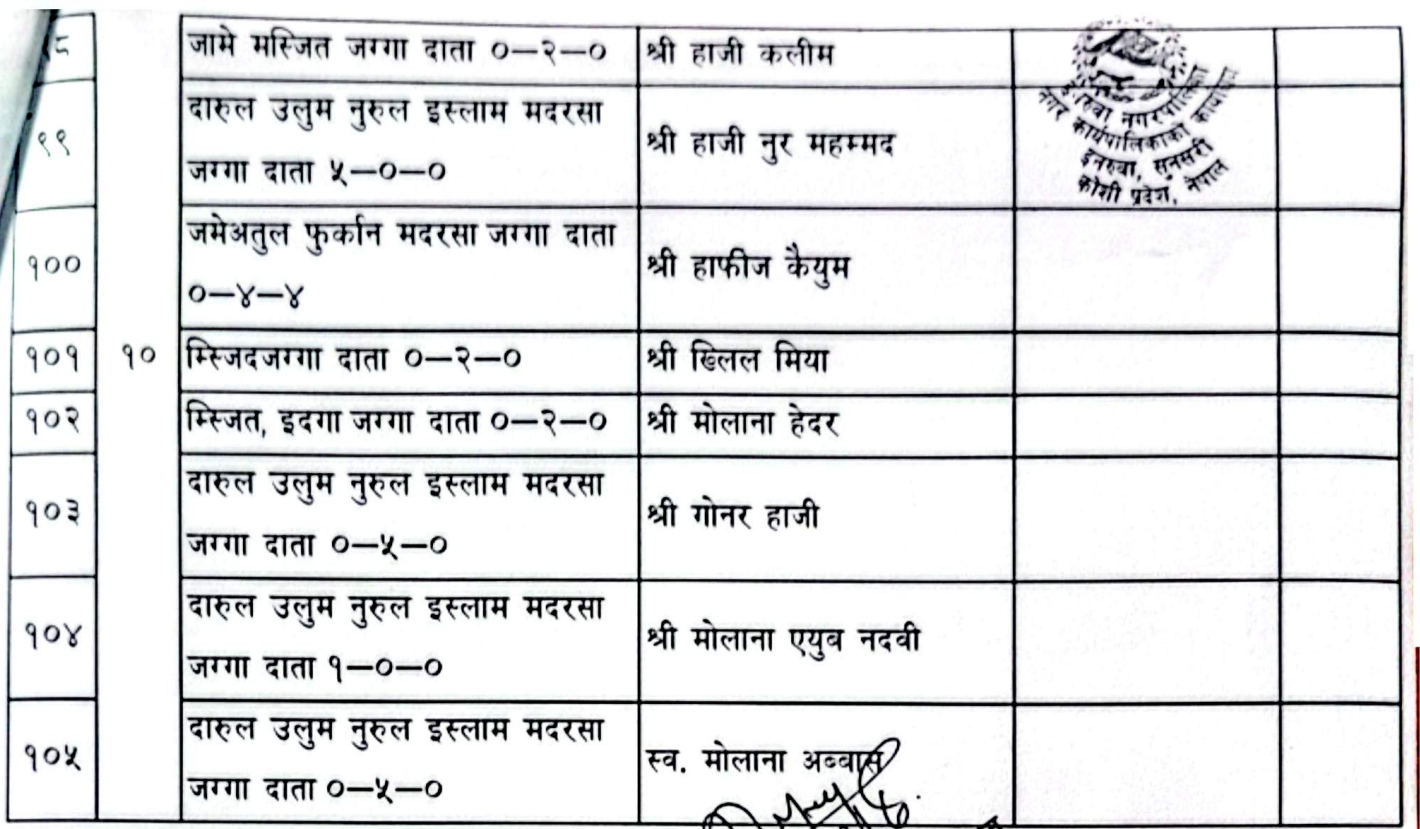 जामे मस्जित जग्गा दाता ०—२—० श्री हाजी कलीम
९९ दारुल उलुम नुरुल इस्लाम मदरसा
जग्गा दाता ५—०—० श्री हाजी नुर महम्मद
१०० जमेअतुल फुर्कान मदरसा जग्गा दाता
०—४—४ श्री हाफीज कैयुम
१०१ १० म्स्जिदजग्गा दाता ०—२—० श्री खिलल मिया
१०२ म्स्जित, इदगा जग्गा दाता ०—२—० श्री मोलाना हेदर
१०३ दारुल उलुम नुरुल इस्लाम मदरसा
जग्गा दाता ०—५—० श्री गोनर हाजी
१०४ दारुल उलुम नुरुल इस्लाम मदरसा
जग्गा दाता १—०—० श्री मोलाना एयुब नदवी
१०५ दारुल उलुम नुरुल इस्लाम मदरसा
जग्गा दाता ०—५—० स्व. मोलाना अब्बास
नगरपालिका
नगर कार्यपालिकाको कार्यालय
इनरुवा, सुनसरी
कोशी प्रदेश, नेपाल